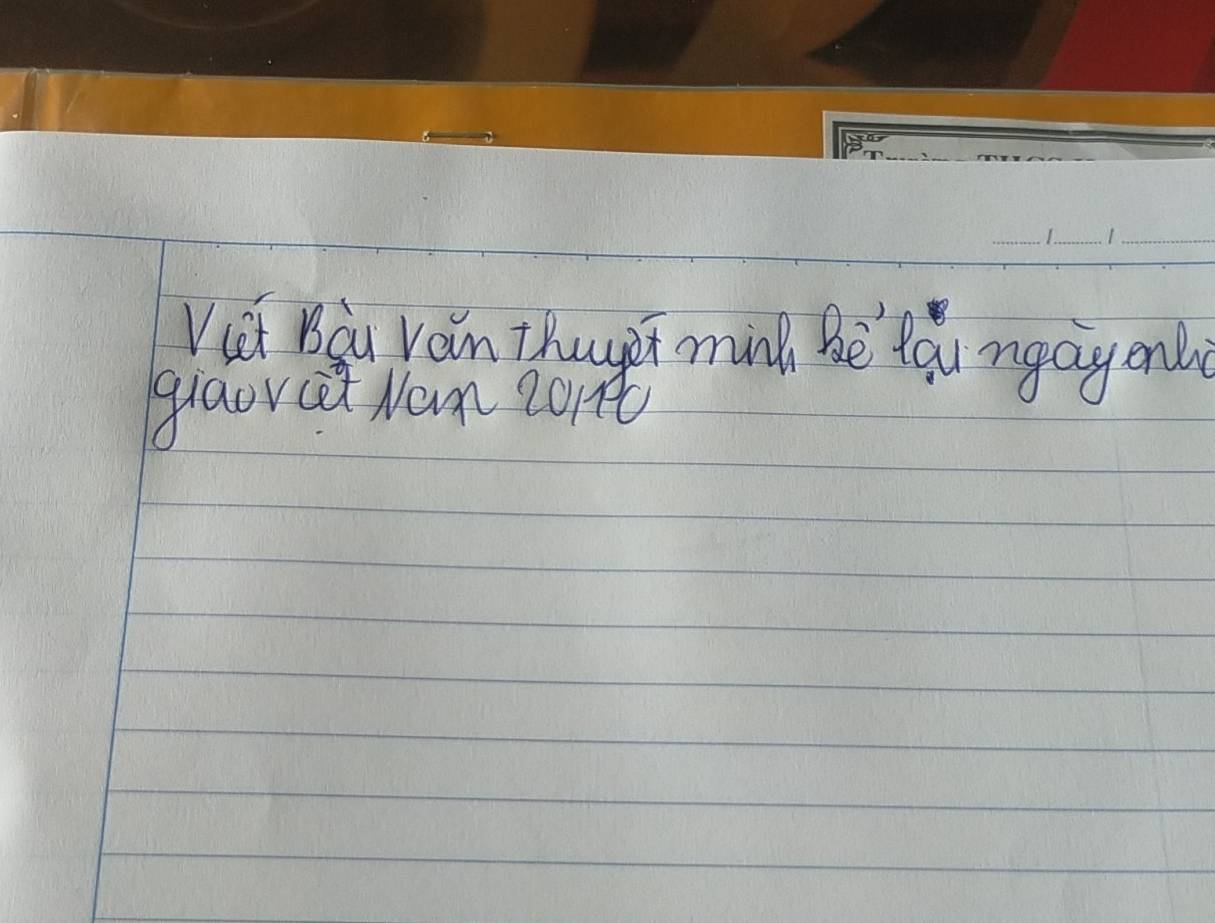 Viết Bài văn thuyết minh kể lại ngày nhà
giáo việt Nam 20/10